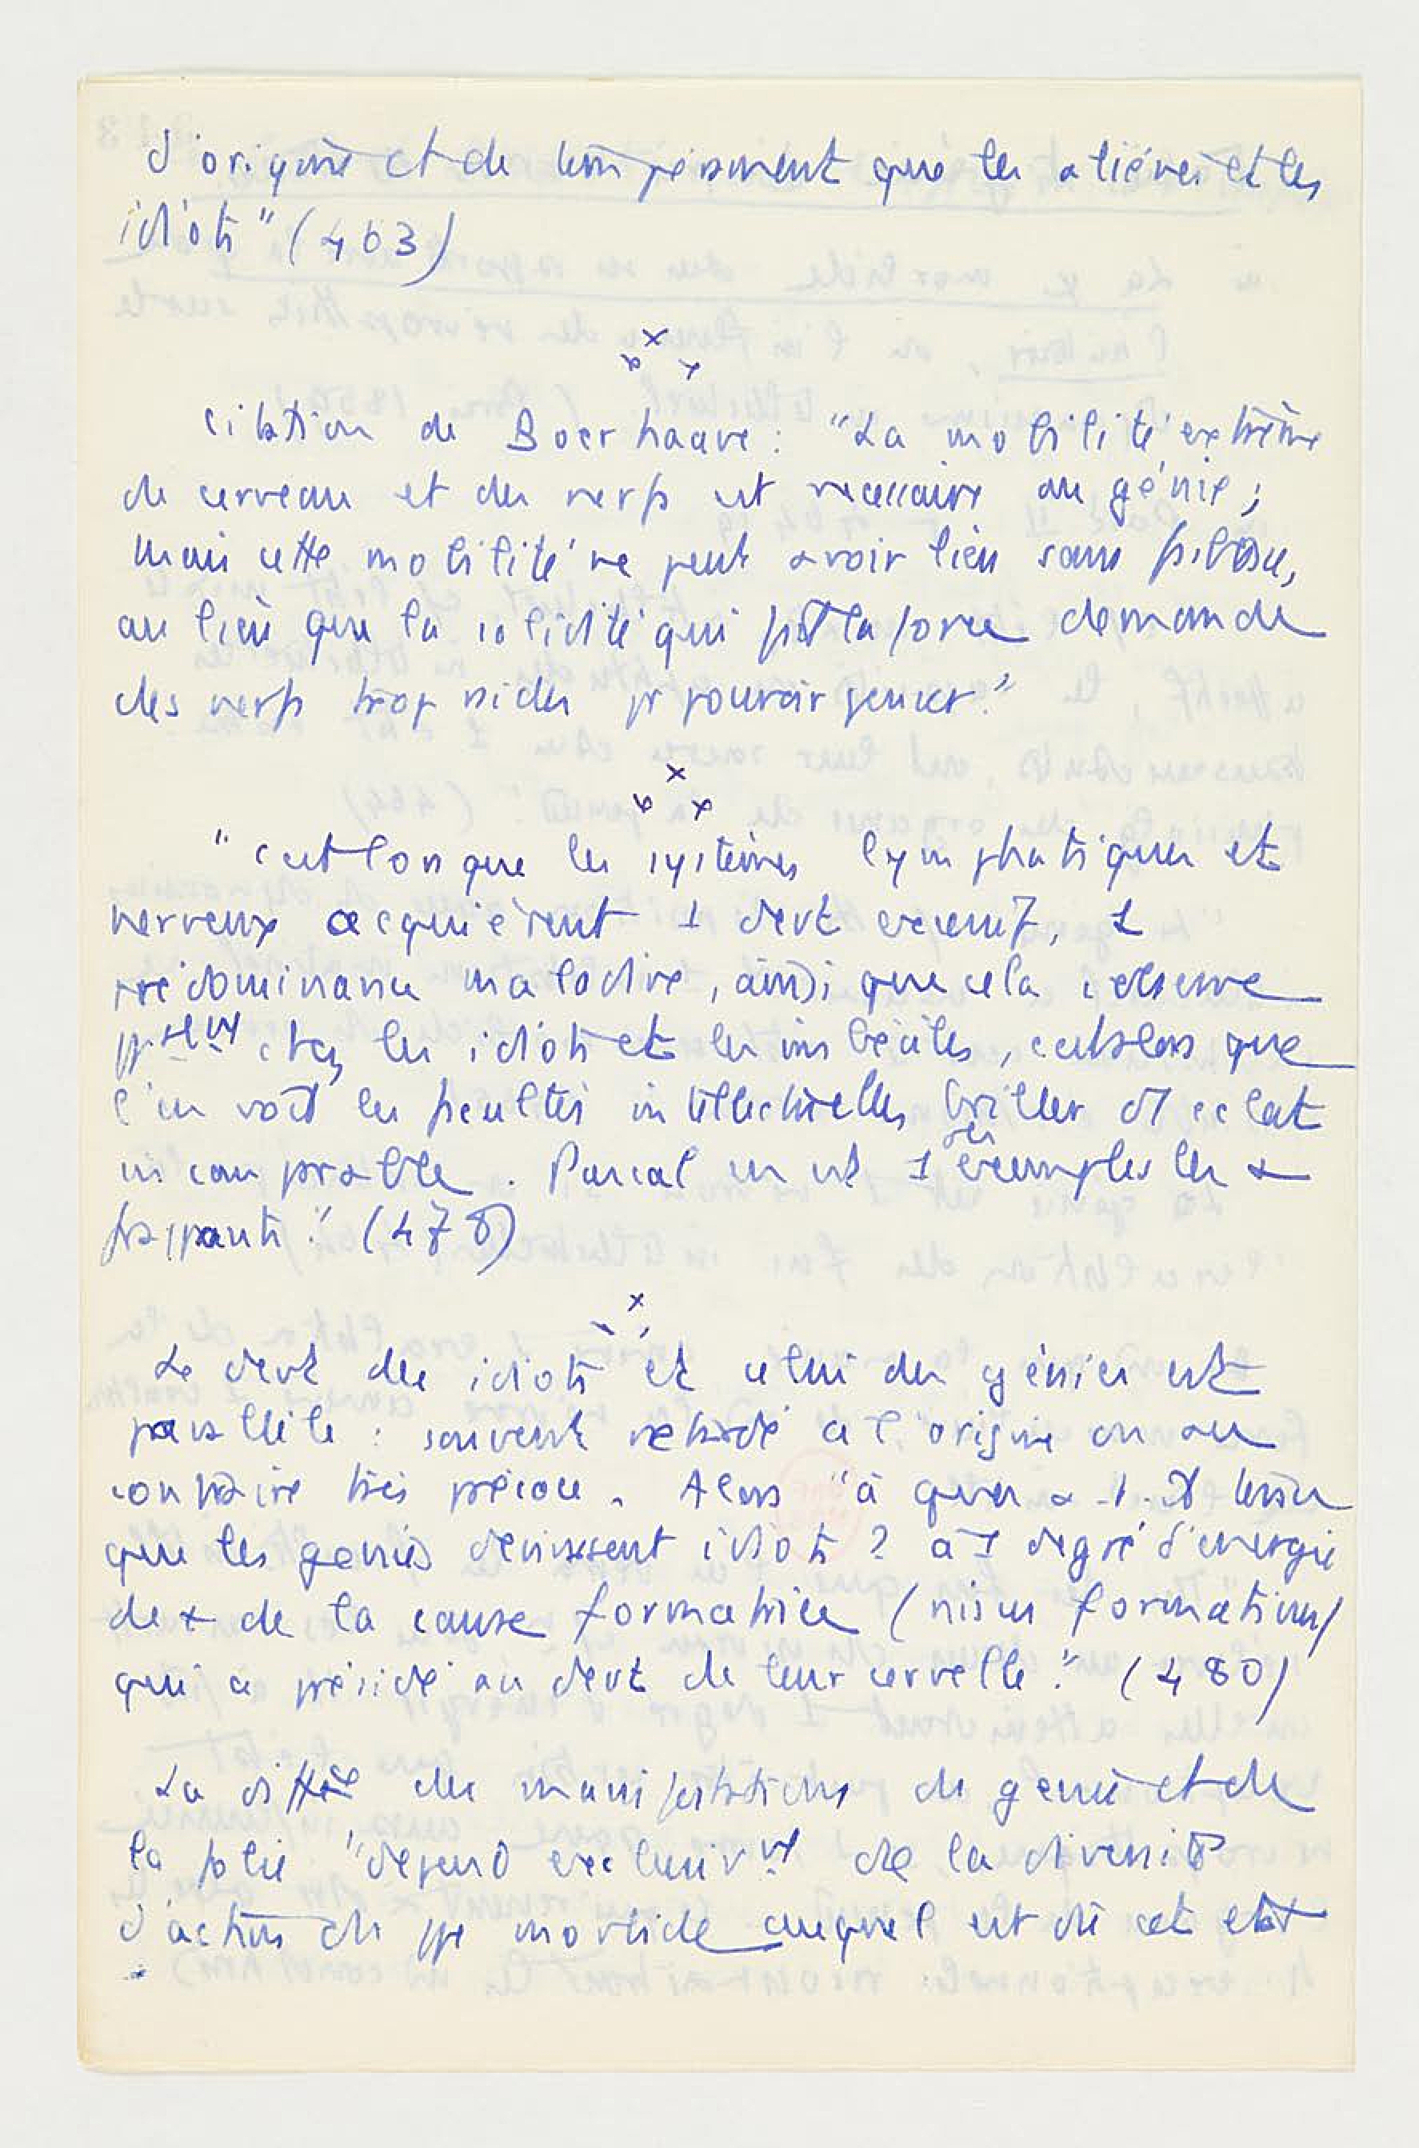 d'origine et de tempérament que les aliénés et les
idiots" (463)
x
x x
Citation de Boerhaave : "La mobilité extrême
du cerveau et des nerfs est necessaire au génie ;
mais cette mobilité ne peut avoir lieu sans faiblesse,
au lieu que la solidité qui fait la force demande
des nerfs trop rides pr pouvoir penser."
x
x x
"C'est lorsque les systèmes lymphatiques et
nerveux acquièrent 1 devt excessif, 1
prédominance maladive, ainsi que cela s'observe
chez les idiots et les imbéciles, c'est alors que
l'on voit les facultés intellectuelles briller d'1 éclat
incomparable. Pascal en est 1 des exemples les +
frappants." (478)
x
Le devt des idiots et celui des génies est
parallèle : souvent retardé à l'origine ou au
contraire très précoce. Alors "à quoi
que les génies devinssent idiots ? à 1 degré d'énergie
de + de la cause formatrice (nisus formativus)
qui a présidé au devt de leur cervelle." (480)
La différence des manifestations du génie et de
la folie "dépend exclusivvt de la diversité
d'action du ppe morbide auquel est dû cet état